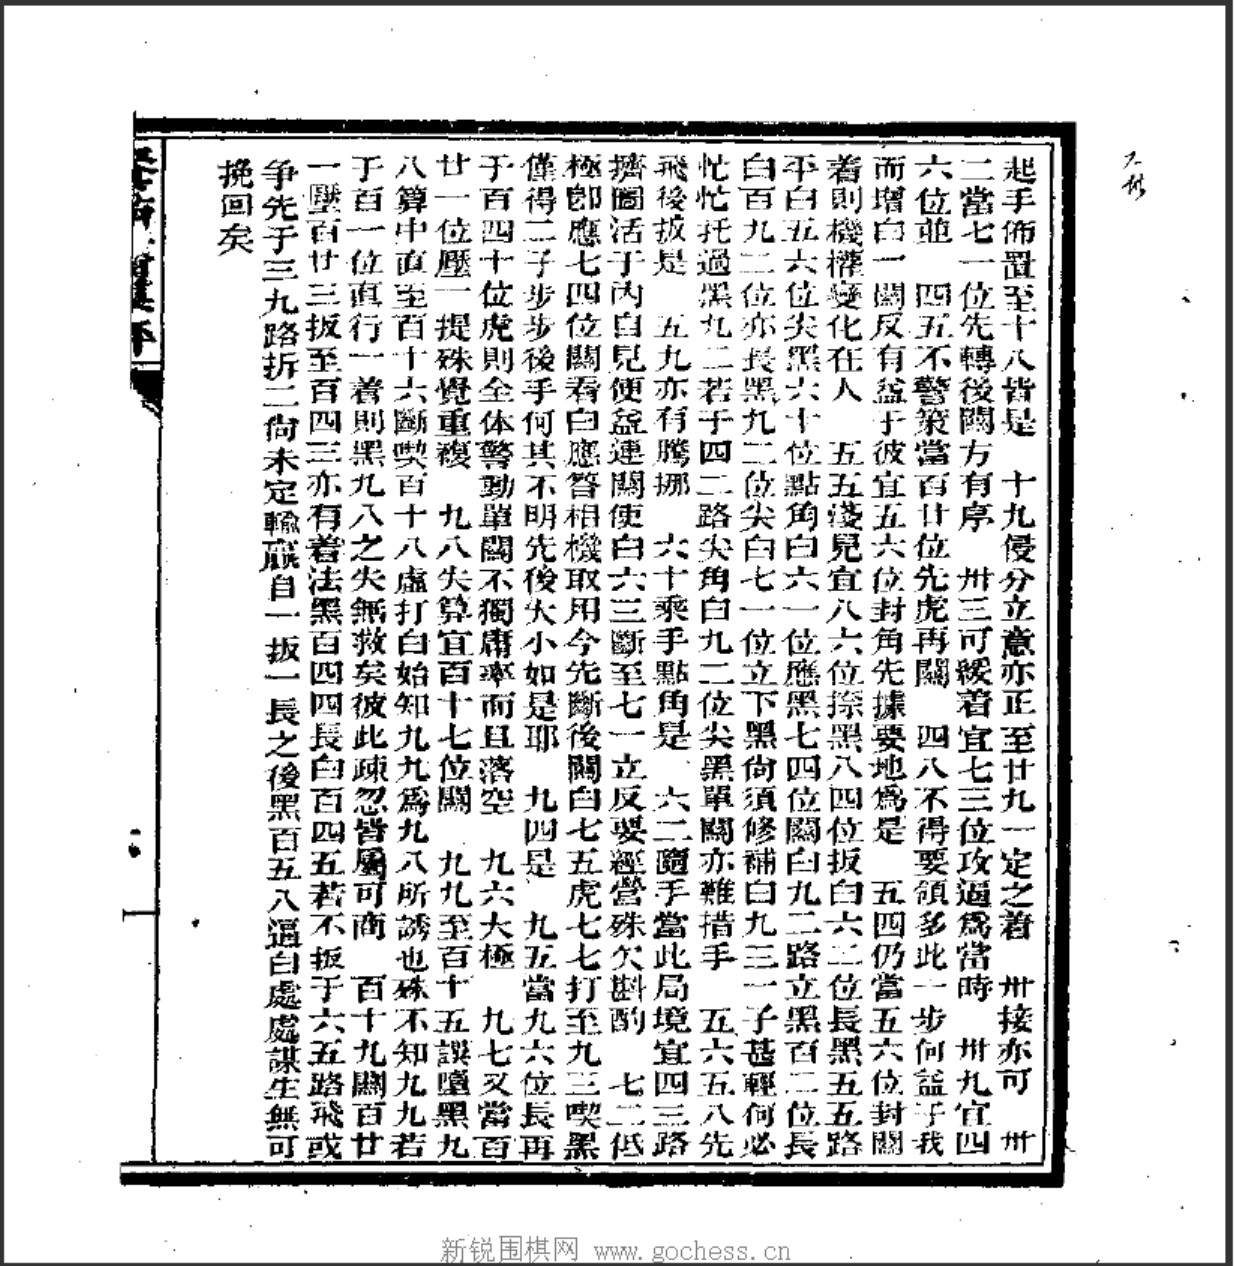 起手佈置至十八皆是　十九侵分立意亦正至廿九一定之着　卅接亦可　卅
二當七一位先轉後關方有序　卅三可緩着宜七三位攻逼爲當時　卅九宜四
六位並　四五不警策當百廿位先虎再關　四八不得要領多此一步何益于我
而增白一關反有益于彼宜五六位封角先據要地爲是　五四仍當五六位封關
着則機權變化在人　五五淺見宜八六位捺黑八四位扳白六二位長黑五五路
平白五六位尖黑六十位點角白六一位應黑七四位關白九二路立黑百二位長
白百九二位亦長黑九二位尖白七一位立下黑尙須修補白九三一子甚輕何必
忙忙托過黑九二若于四二路尖角白九二位尖黑單關亦難措手　五六五八先
飛後扳是　五九亦有騰挪　六十乘手點角是　六二隨手當此局境宜四三路
擠圖活于內自見便益連關使白六三斷至七一立反要經營殊欠斟酌　七二低
極卽應七四位關看白應答相機取用今先斷後關白七五虎七七打至九三喫黑
僅得二子步步後手何其不明先後大小如是耶　九四是　九五當九六位長再
于百四十位虎則全体警動單關不獨庸率而且落空　九六大極　九七又當百
廿一位壓一提殊覺重複　九八失算宜百十七位關　九九至百十五誤墮黑九
八算中直至百十六斷喫百十八虛打白始知九九爲九八所誘也殊不知九九若
于百一位直行一着則黑九八之失無救矣彼此疎忽皆屬可商　百十九關百廿
一壓百廿三扳至百四三亦有着法黑百四四長白百四五若不扳于六五路飛或
争先于三九路折二尙未定輸贏自一扳一長之後黑百五八逼白處處謀生無可
挽回矣
新锐围棋网 www.gochess.cn